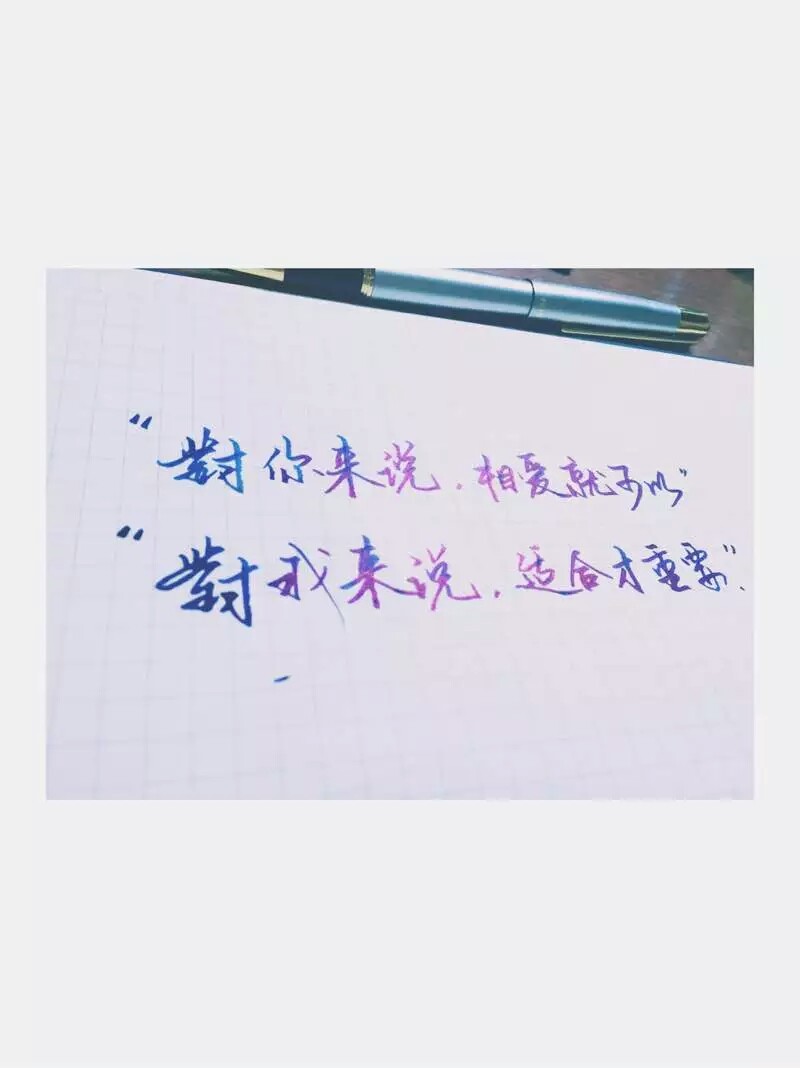 “對你来说，相爱就可以”
“對我来说，适合才重要”.